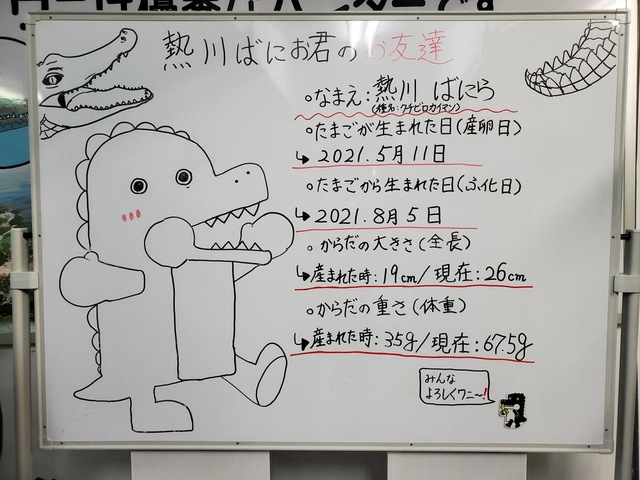 熱川ばにお君のお友達
○なまえ:熱川 ばにら
(種名:クチビロカイマン)
○たまごが生まれた日(産卵日)
↳2021.5月11日
○たまごから生まれた日(ふ化日)
↳2021.8月5日
○からだの大きさ(全長)
↳産まれた時:19cm/現在:26cm
○からだの重さ(体重)
↳産まれた時:35g/現在:67.5g
みんな
よろしくワニ〜!